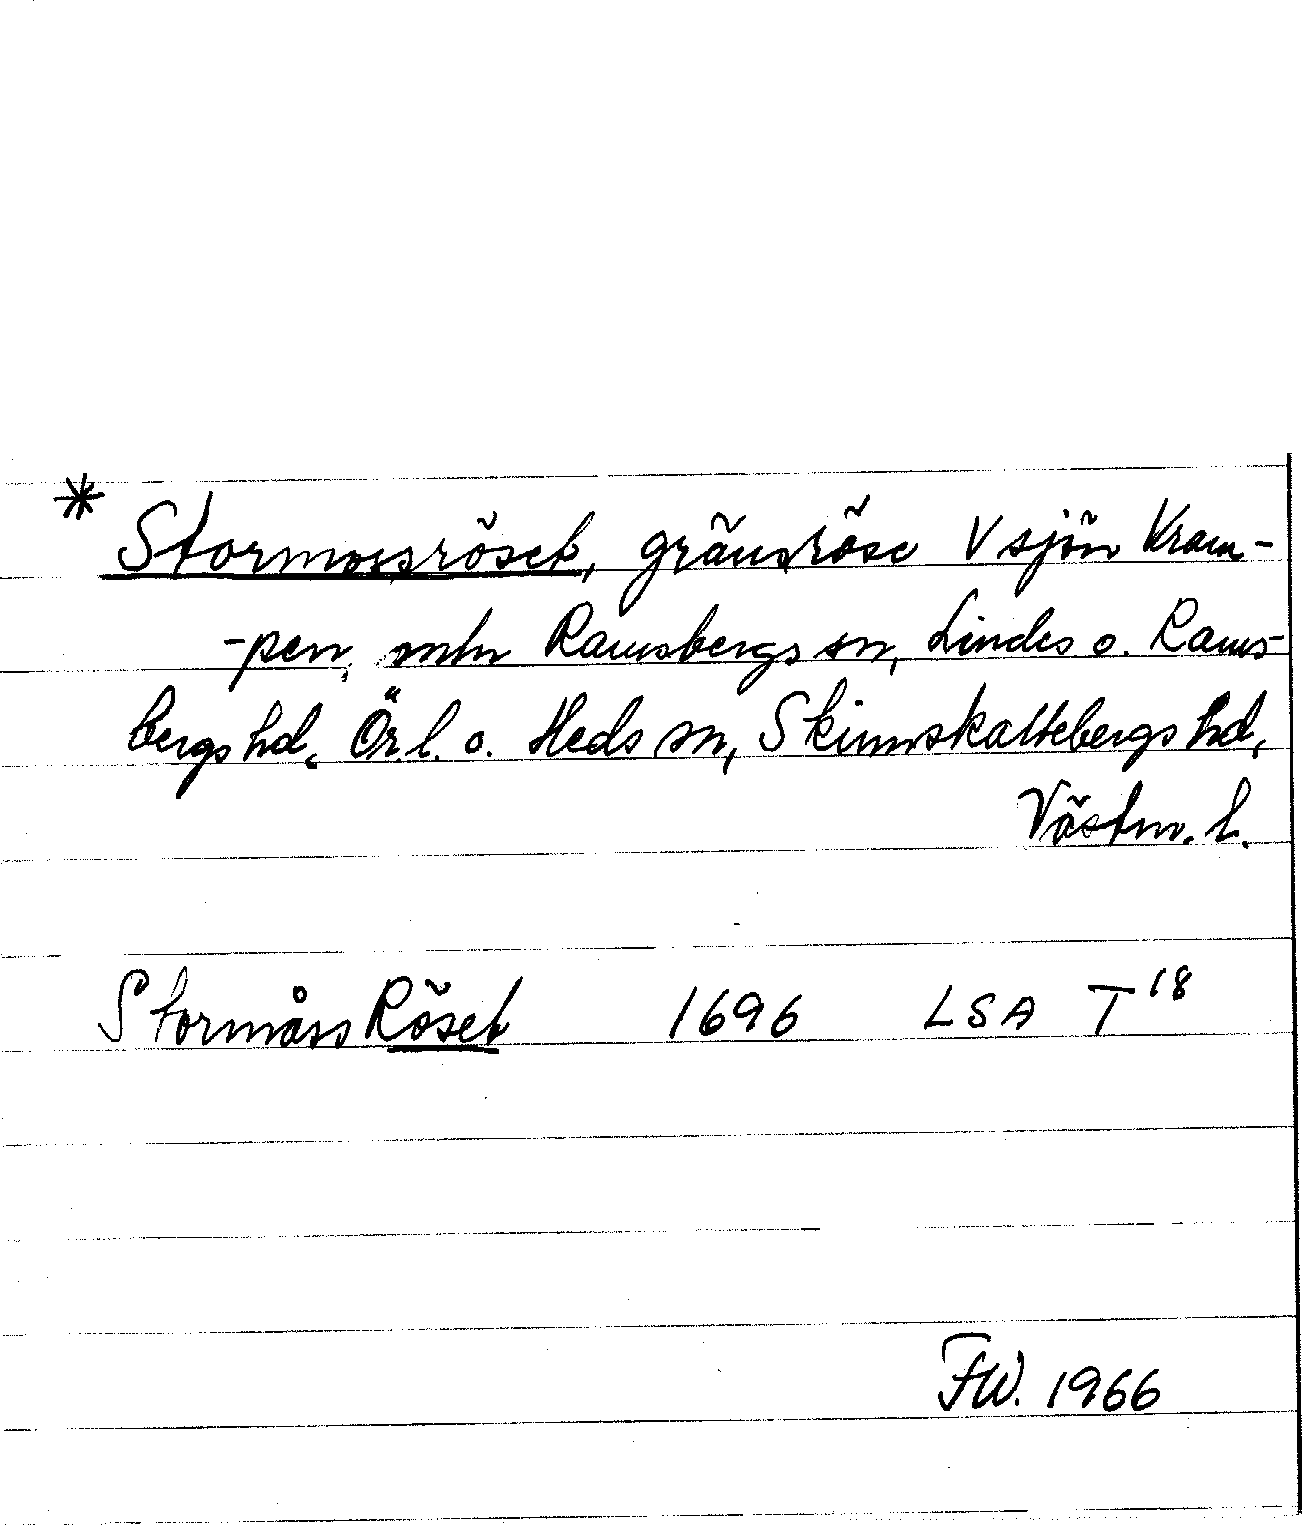 * Stormossröset, gränsröse V sjön Kram-
-pen, mln Ramsbergs sn, Lindes o. Rams-
bergs hd, Ör. l. o. Heds sn, Skinnskattebergs hd,
Västm. l.
Stormåss Röset 1696 LSA T 18
FW. 1966